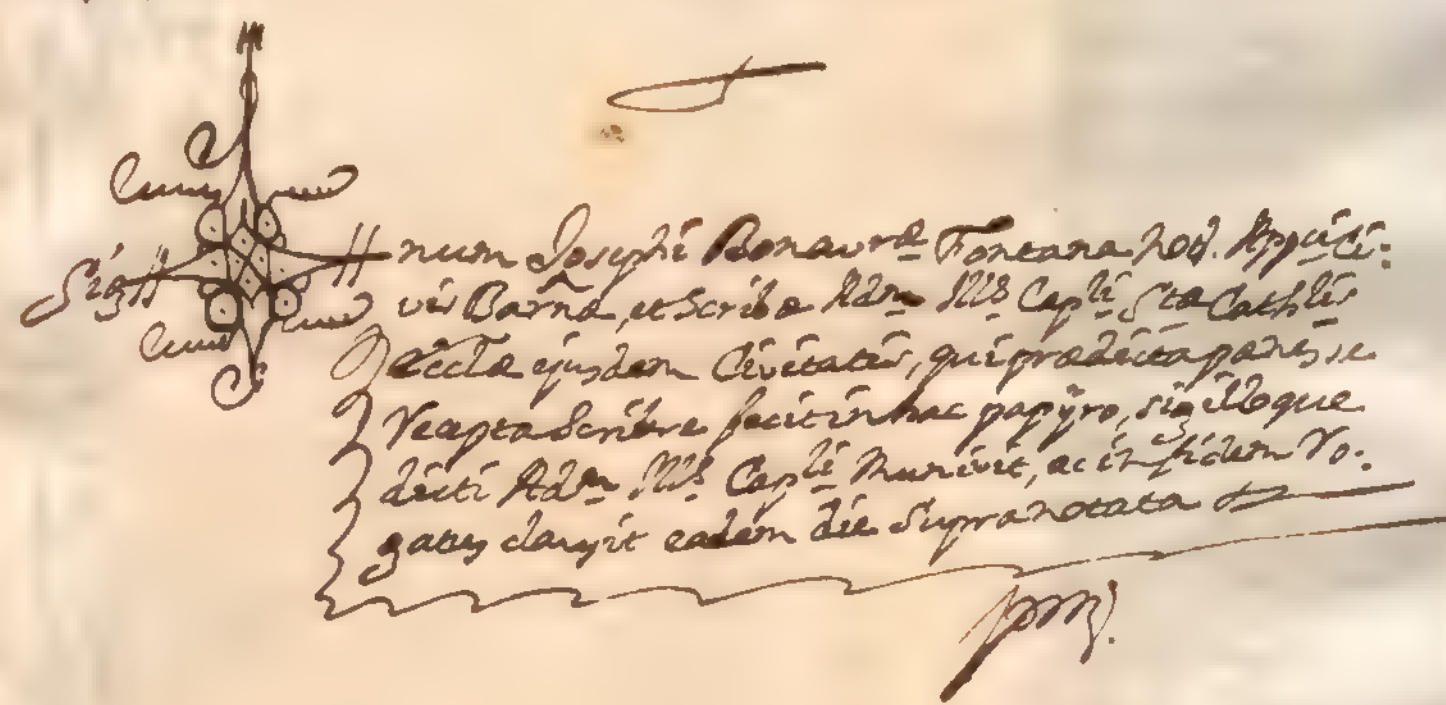 Sig num Josephi Bonavræ Fontana Not. Appci Ci:
vis Barnæ, et Scribæ Adm Illis Capli Stæ Cathlis
Ecclæ ejusdem Civitatis, qui prædicta penes se
recepta Scribere fecit in hac papÿro, sigilloque
dicti Adm Illis Capli Munivit, ac in fidem Ro:
gatus clausit eadem die Supranotata